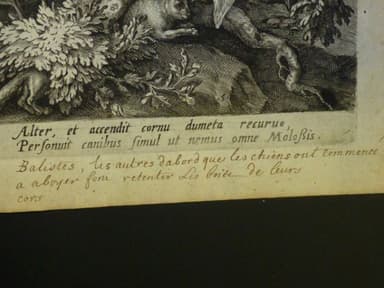 Alter, et accendit cornu dumeta recuruo,
Personuit canibus simul ut nemus omne Molossis.
Balistes, les autres dabord que les chiens ont commence,
a aboyer font retentir Les bois de leurs
cors